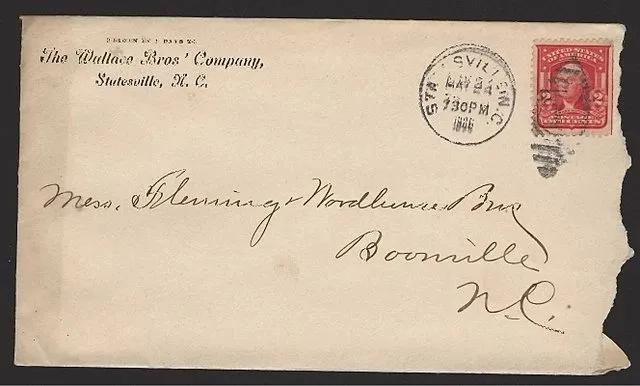 RETURN IN 5 DAYS TO
The Wallace Bros' Company,
Statesville, N. C.
STATESVILLE N.C.
MAY
7 30 PM
UNITED STATES
OF AMERICA
2 2
POSTAGE
TWO CENTS
Mess. Fleming & Woodhouse Bros
Boonville
N.C.